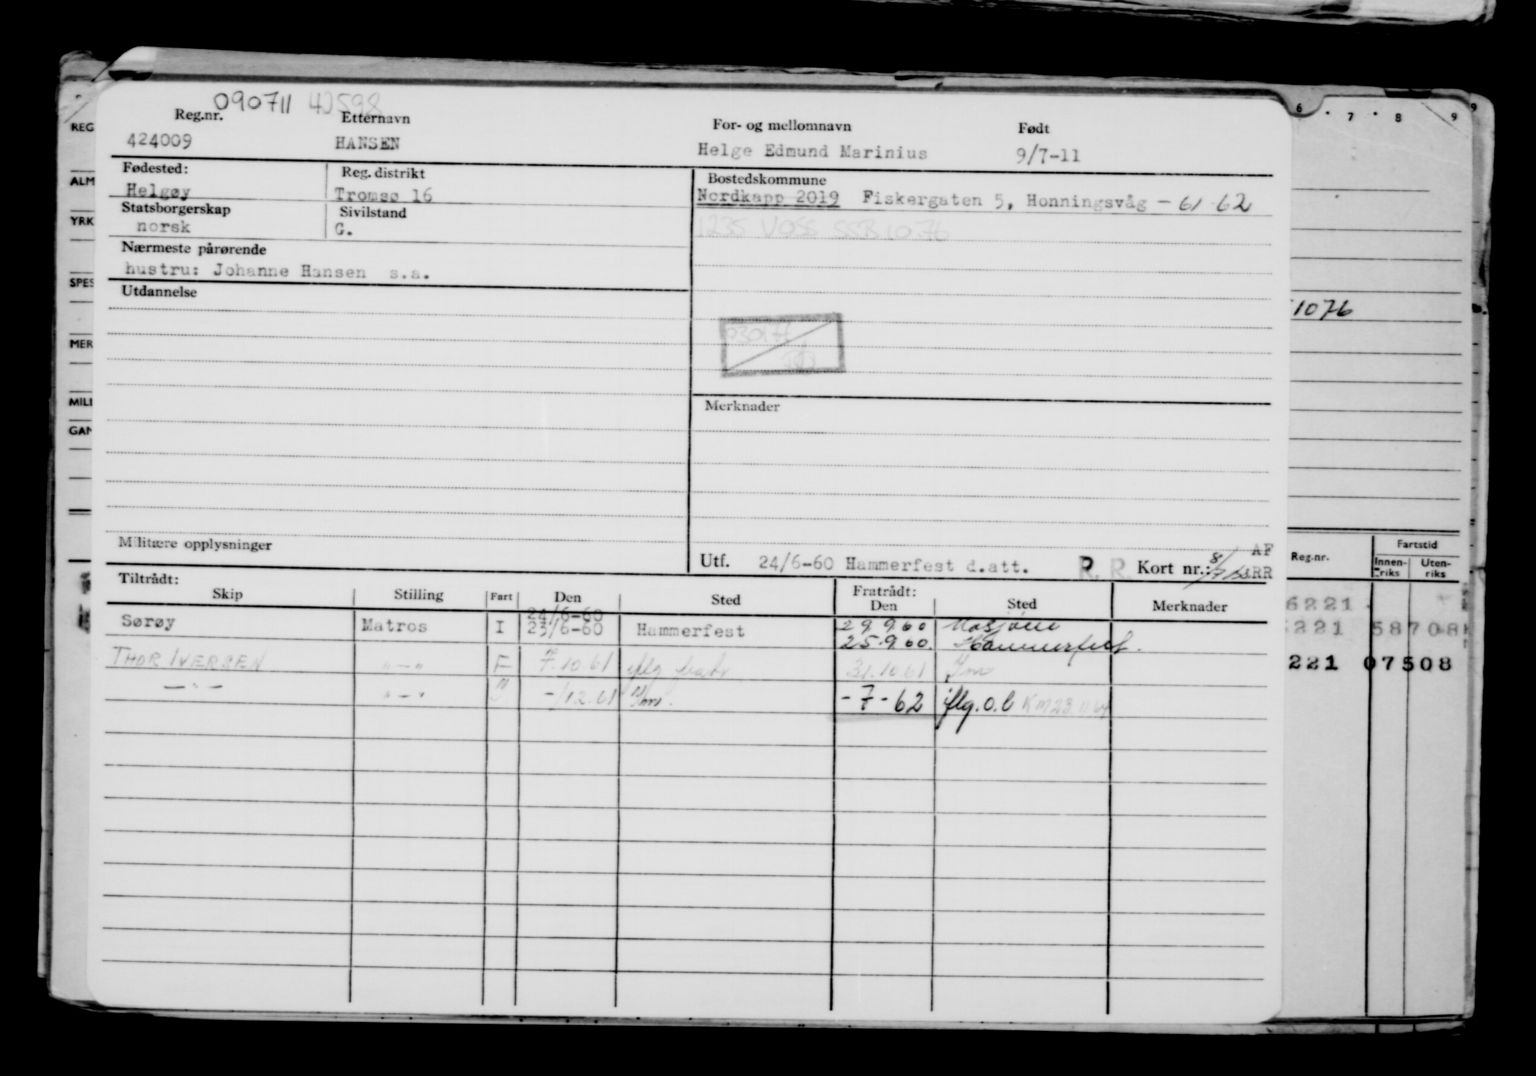 090711 40598
Reg.nr. Etternavn For- og mellomnavn Født
424009 HANSEN Helge Edmund Marinius 9/7-11
Fødested: Reg. distrikt Bostedskommune
Helgøy Tromsø 16 Nordkapp 2019 Fiskergaten 5, Honningsvåg - 61 62
Statsborgerskap Sivilstand
norsk G. 1235 VOSS SSB 1076
Nærmeste pårørende
hustru: Johanne Hansen s.a.
Utdannelse
1076
Merknader
Militære opplysninger
Utf. 24/6-60 Hammerfest d.att. R. R. Kort nr.: AF
RR
Tiltrådt: Fratrådt:
Skip Stilling Fart Den Sted Den Sted Merknader
24/6-60
Sørøy Matros I 23/6-60 Hammerfest 29.9.60 Mosjøen
25.9.60. Hammerfest.
THOR IVERSEN " - " F 7.10.61 iflg 31.10.61
- " - " - " -/12.61 - 7 - 62 iflg. o.b
REG
ALM
YRK
SPES
MER
MILI
GAN
6 7 8 9
Reg.nr. Fartstid
Innenriks Utenriks
6221
221 58708
221 07508